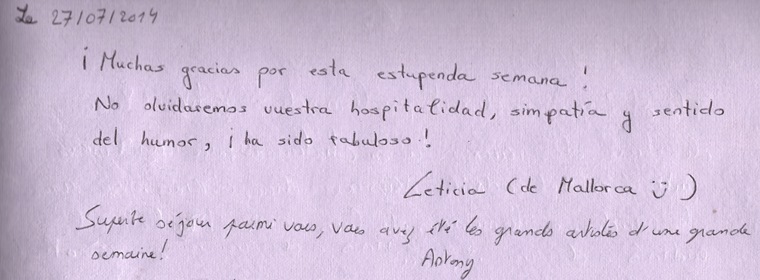 Le 27/07/2014
¡Muchas gracias por esta estupenda semana!
No olvidaremos vuestra hospitalidad, simpatía y sentido
del humor, ¡ha sido fabuloso!
Leticia (de Mallorca :))
Superbe séjour parmi vous, vous avez été les grands artistes d'une grande
semaine!
Antony